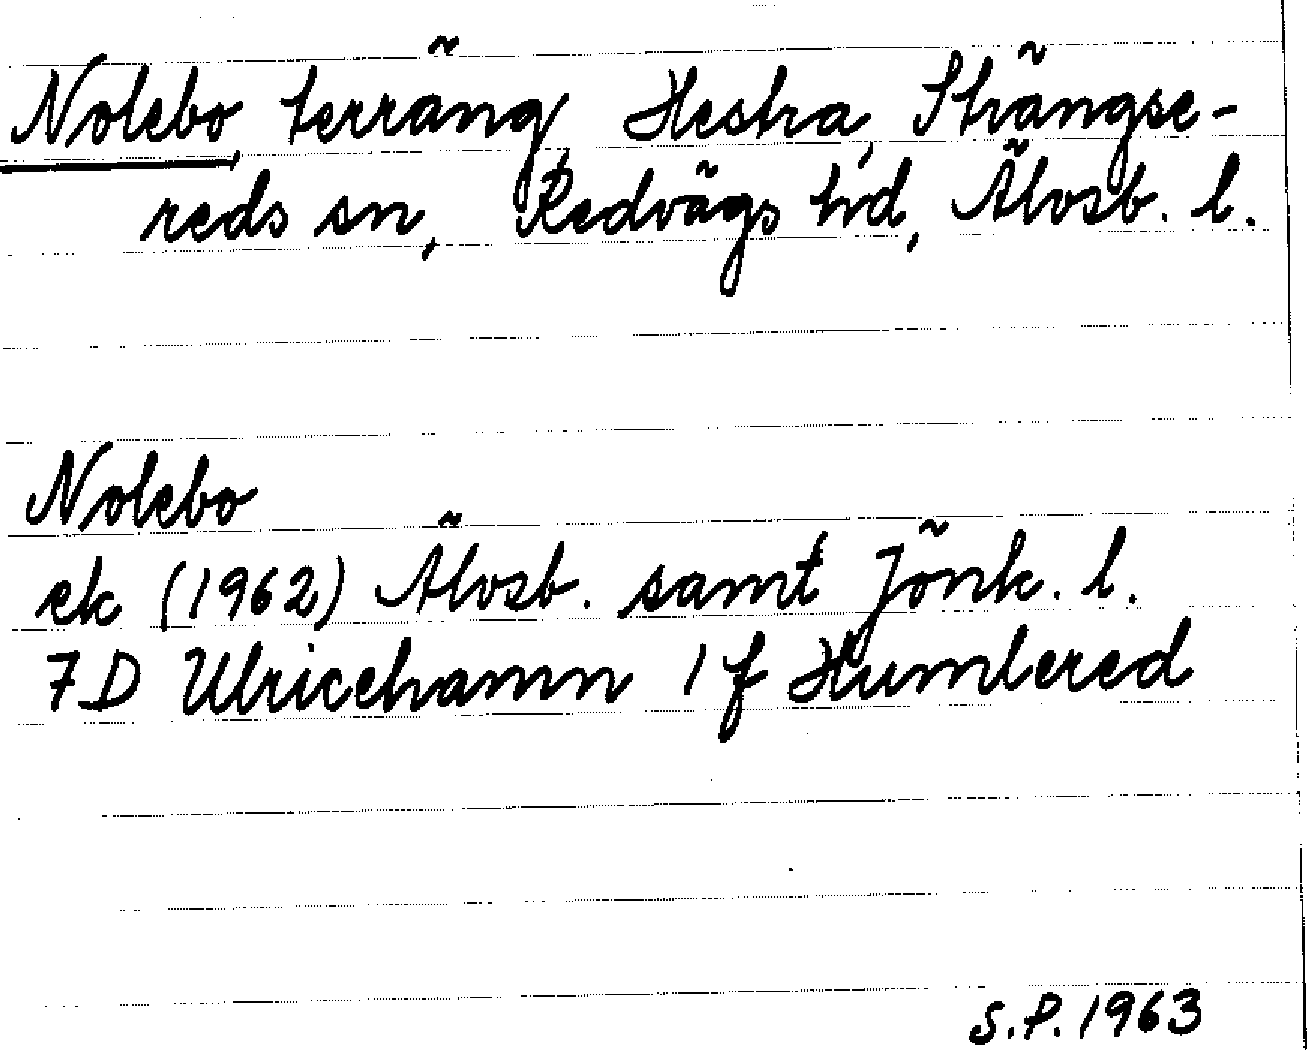 Nolebo, terräng, Hestra, Strängse-
reds sn, Redvägs hd, Älvsb. l.
Nolebo
ek (1962) Älvsb. samt Jönk. l.
7D Ulricehamn 1 f Humlered
S.P. 1963